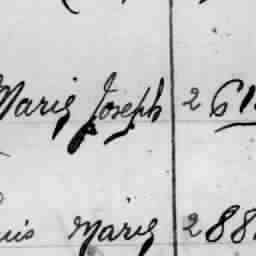 Marie Joseph 261
Marie 288